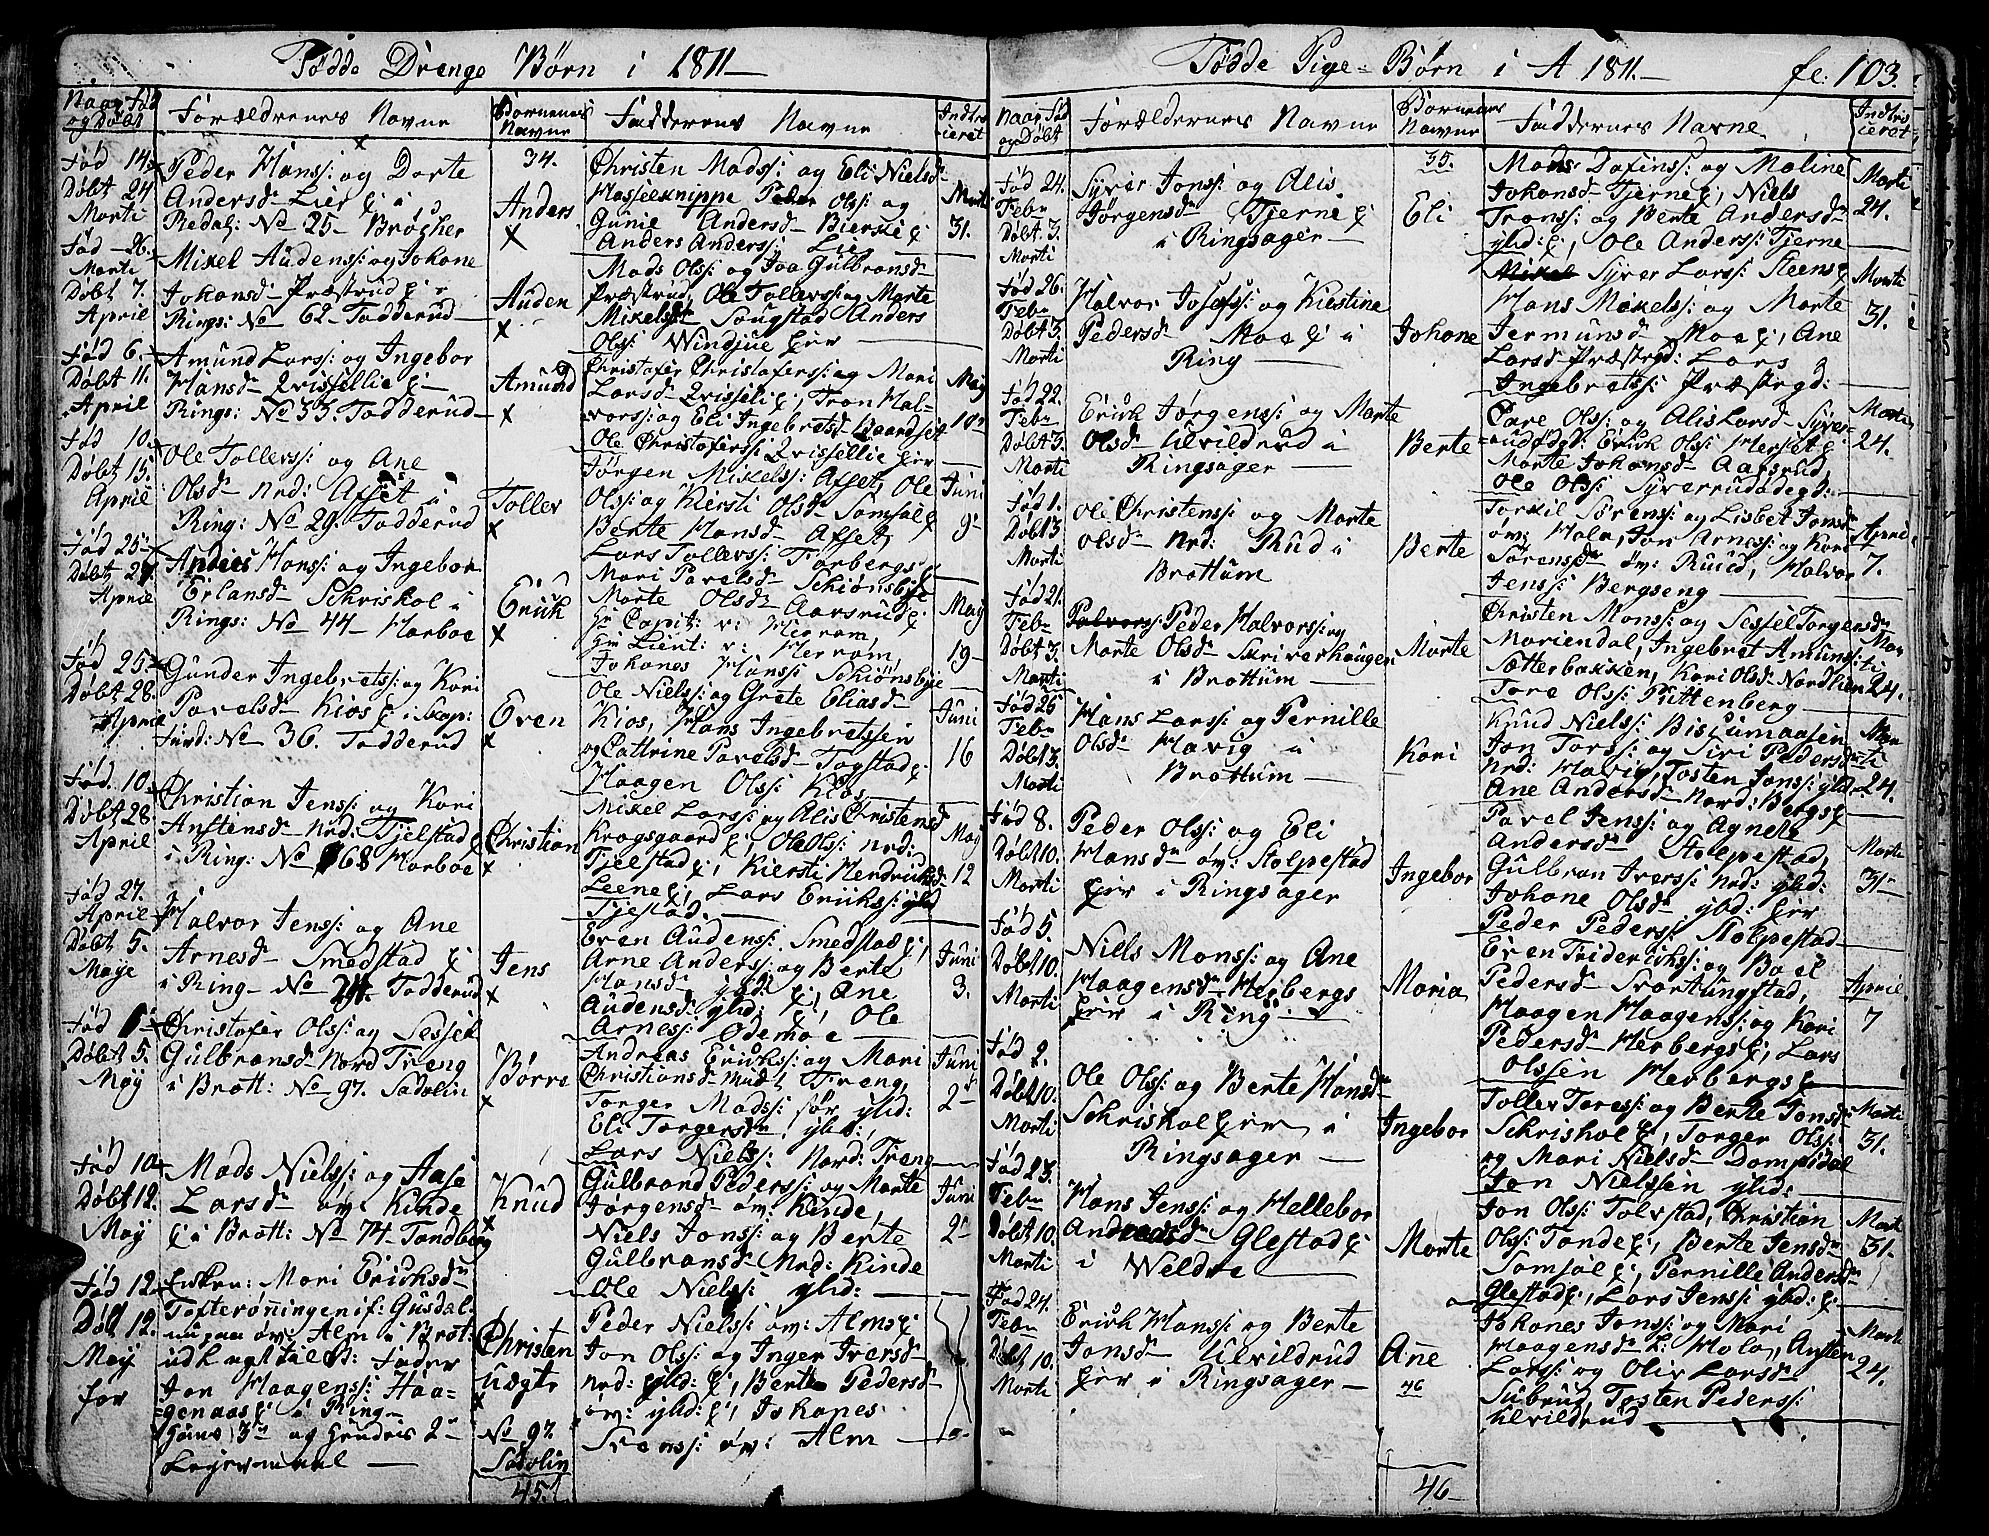 Fødde Drenge Børn i 1811
Naar Fød og Døbt
Forældrenes Navne
Børnenes Navne
Faddernes Navne
Indtrs ieret
Fød 14
Døbt 24
Marti
Peder Hans: og Dorte
Andersd Lier
Redal: No 25 Brøgher
34.
Anders
Christen Mads: og Eli Nielsd
Hasseknippe Peder Ols: og
Gunie Andersd Bierke
Anders Anders: Lier
Marti
31.
Fød 26.
Marti
Døbt 7.
April
Mikel Audens: og Johane
Johansd Præstrud
Rings: No 62 Fadderud
Auden
Mads Ols: og Joa Gulbransd
Præstrud, Ole Tollers: og Marte
Mikelsd Sougstad Anders
Ols: Windjue
Fød 6.
Døbt 11.
April
Amund Lars: og Ingebor
Hansd Qvissellie
Rings: No 33. Fadderud
Amund
Christofer Christofers: og Mari
Larsd Qvisseli, Tron Hal-
vors: og Eli Ingebretsd Baardset
Ole Christofers: Qvissellie
May
10
Fød 10.
Døbt 15.
April
Ole Tollers: og Ane
Olsd Nrd: Afset i
Ring: No 29. Fadderud
Toller
Jørgen Mikels: Afset, Ole
Ols: og Kiersti Olsd Samsal
Berte Hansd Afset,
Lars Tollers: Farbergs
Juni
9
Fød 25
Døbt 28
April
Anders Hans: og Ingebor
Erlansd Schriskol i
Rings: No 44 Harboe
Erick
Mari Pavelsd Schiønsbye
Marte Olsd Aarsrud
Hr Capit: v: Herram,
Hr Lieut: v: Herram
Johanes Hans: Schiønsbye
May
19
Fød 25
Døbt 28.
April
Gunder Ingebrets: og Kari
Pavelsd Kios i Skap:
furd: No 36. Fadderud
Even
Ole Niels: og Grete Eliasd
Kios, Hans Ingebretsen
og Cattrine Pavelsd Fogstad
Haagen Ols: Kios
Juni
16
Fød. 10
Døbt 28
April
Christian Jens: og Kari
Anstensd Nrd: Tjelstad
i Ring: No 68 Harboe
Christian
Mikel Lars: og Alis Christensd
Krogsgaard, Ole Ols: Nrd:
Tjelstad, Kiersti Hendricksd
Leene, Lars Ericks: ybd
Tjestad.
May
12
Fød 27.
April
Døbt 5.
Maye
Halvor Jens: og Ane
Arnesd Smedstad
i Ring No 24. Fadderud
Jens
Even Audens: Smedstad,
Arne Anders: og Berte
Hansd ybd, Ane
Audensd ybd:, Ole
Arnes: Ødemoe
Juni
3.
Fød 1
Døbt 5.
May
Christofer Ols: og Sessel
Gulbransd Nord Treng
i Brøtt: No 97. Sadolin
Børre
Andreas Ericks: og Mari
Christiansd Treng,
Torger Mads: Sør ybd:
Eli Torgersd, ybd:,
Lars Niels: Nord: Treng
Juni
2
Fød 10
Døbt 12.
May
Mads Niels: og Aase
Larsd øv: Kinde
i Brøtt: No 74 Tandberg
Knud
Gulbrand Peders: og Marte
Jørgensd øv: Kinde,
Niels Jons: og Berte
Gulbransd Nrd: Kinde
Ole Niels: ybd:
Juni
2
Fød 12
Døbt 12.
May
for
Mari Ericksd
Tofterønningen i Gusdal
nu paa øv: Alm i Brøt:
udlagt til B: fader
Jon Haagens: Haa-
genaas i Ring
3 og Hendes 2
Lejermaal
Christen
uægte
No 97
Sadolin
45.
Peder Niels: øv: Alms
Jon Ols: og Inger Iversd
Nrd: ybd:, Berte Pedersd
øv: ybd:, Johanes
Svens: øv: Alm
Fødde Pige-Børn i A 1811.
fc: 103.
Naar Fød og Døbt
Forældernes Navne
Børnenes Navne
Faddernes Navne
Indtrs ieret
Fød 24.
Febr
Døbt 3.
Marti
Syver Jons: og Alis
Jørgensd Tjerne
i Ringsager
35.
Eli
Mads Dafins: og Maline
Johansd Tjerne, Niels
Trons: og Berte Andersd
ybd:, Ole Anders: Tjerne
Marti
24.
Fød 26.
Febr
Døbt 3.
Marti
Halvor Josefs: og Kiestine
Pedersd Moe i
Ring
Johane
Syver Lars: Steens
Hans Mikels: og Marte
Jermunsd Moe, Ane
Larsd Præstegd: Lars
Ingebrets: Præstegd:
Marti
31.
Fød 22.
Febr
Døbt 3.
Marti
Erick Jørgens: og Marte
Olsd Ulvildrud i
Ringsager
Berte
Care Ols: og Alis Larsd Syver-
rudødgd: Erick Ols: Herset
Marte Johansd Aarsrud,
Ole Ols: Syverrudødegd:
Marti
24.
Fød 1.
Døbt 3
Marti
Ole Christens: og Marte
Olsd Nrd: Rud i
Brøttum
Berte
Torkil Sørens: og Lisbet Jonsd
øv: Holm, Jon Arnes: og Kari
Sørensd øv: Ruud, Halvor
Jens: Bergseng
April
7.
Fød 21.
Febr
Døbt 3.
Marti
Peder Halvors: og
Marte Olsd Skriverhaugen
i Brøttum
Marte
Christen Mons: og Sessel Torgersd
Mariendal, Ingebret Amuns:
Sætterbakken, Kari Olsd Nordlien
Tore Ols: Puttenberg
Marti
24.
Fød 26
Febr
Døbt 3.
Marti
Hans Lars: og Pernille
Olsd Havig i
Brøttum
Kari
Knud Niels: Biscumaasen
Jon Tors: og Siri Pedersd
Nrd: Havig, Tosten Jons: ybd
Ane Andersd Nord: Bergs
Marti
24.
Fød 8.
Døbt 10.
Marti
Peder Ols: og Eli
Hansd øv: Stolpestad
i Ringsager
Ingebor
Pavel Jens: og Agnete
Andersd Stolpestad,
Gulbran Ivers: Nrd: ybd:
Johane Olsd ybd:
Peder Peders: Stolpestad
Marti
31
Fød 5.
Døbt 10.
Marti
Niels Mons: og Ane
Haagensd Herbergs
i Ring
Maria
Even Fridericks: og Boel
Pedersd Svartungstad,
Haagen Haagens: og Kari
Pedersd Herbergs, Lars
Olssen Herbergs
April
7
Fød 2.
Døbt 10.
Marti
Ole Ols: og Berte Hansd
Schriskol i
Ringsager
Ingebor
Toller Tores: og Berte Jonsd
Schriskol, Torger Ols:
og Mari Nielsd Dompsdal
Jon Nielsen ybd:
Marti
31.
Fød 23.
Febr
Døbt 10.
Marti
Hans Jens: og Hellebor
Andreasd Glestad
i Weldre
Marte
Jon Ols: Tolvstad, Christian
Ols: Tande, Berte Jensd
Samsal, Pernille Andersd
Glestad, Lars Jens: ybd:
Marti
31.
Fød 24.
Febr
Døbt 10.
Marti
Erick Hans: og Berte
Jonsd Ulvildrud
i Ringsager
Ane
46
Johanes Jons: og Mari
Haagensd L: Holo, Ansten
Lars: og Oliv Larsd
Subrud, Tosten Peders:
Ulvildrud
Marti
24.
46